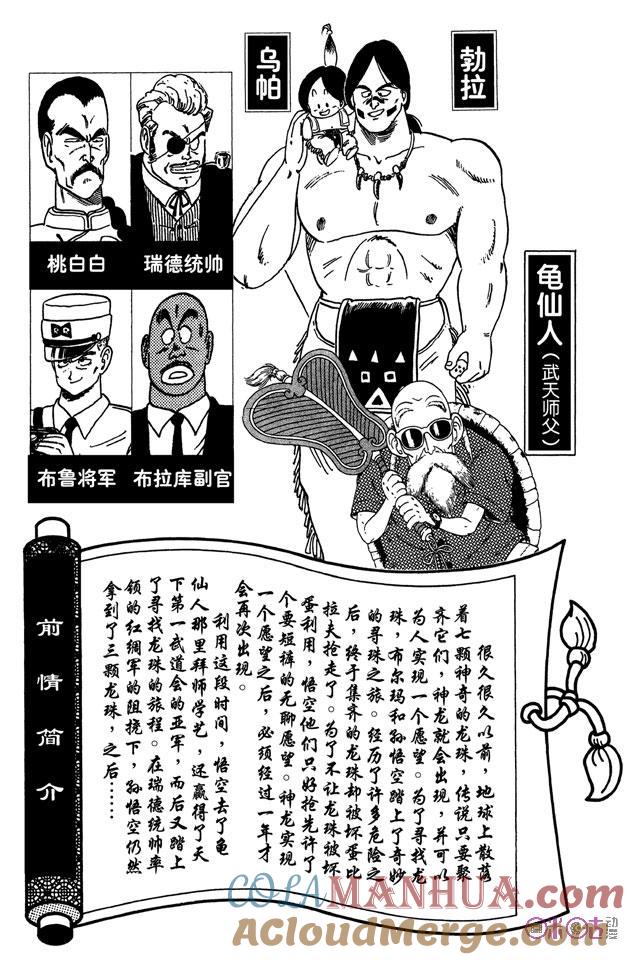 乌帕
勃拉
桃白白
瑞德统帅
龟仙人(武天师父)
布鲁将军
布拉库副官
前情简介
很久很久以前,地球上散落
着七颗神奇的龙珠,传说只要聚
齐它们,神龙就会出现,并可以
为人实现一个愿望。为了寻找龙
珠,布尔玛和孙悟空踏上了奇妙
的寻珠之旅。经历了许多危险之
后,终于集齐的龙珠却被坏蛋比
拉夫抢走了。为了不让龙珠被坏
蛋利用,悟空他们只好抢先许了
个要短裤的无聊愿望。神龙实现
一个愿望之后,必须经过一年才
会再次出现。
利用这段时间,悟空去了龟
仙人那里拜师学艺,还赢得了天
下第一武道会的亚军,而后又踏上
了寻找龙珠的旅程。在瑞德统帅率
领的红绸军的阻挠下,孙悟空仍然
拿到了三颗龙珠,之后……
COLAMANHUA.COM
ACloudMerge.com